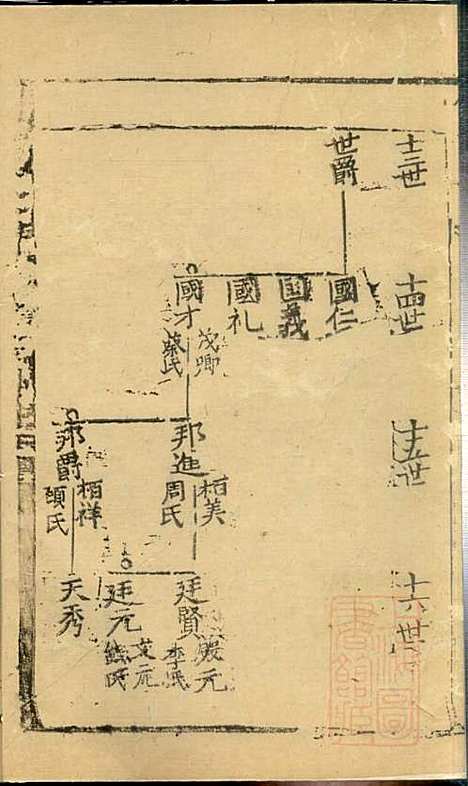 十三世
世爵
十四世
國仁
国義
國礼
國才
茂卿
蔡氏
十五世
邦進
栢美
周氏
邦爵
栢祥
項氏
十六世
廷賢
殿元
李氏
廷元
文元
熊氏
天秀